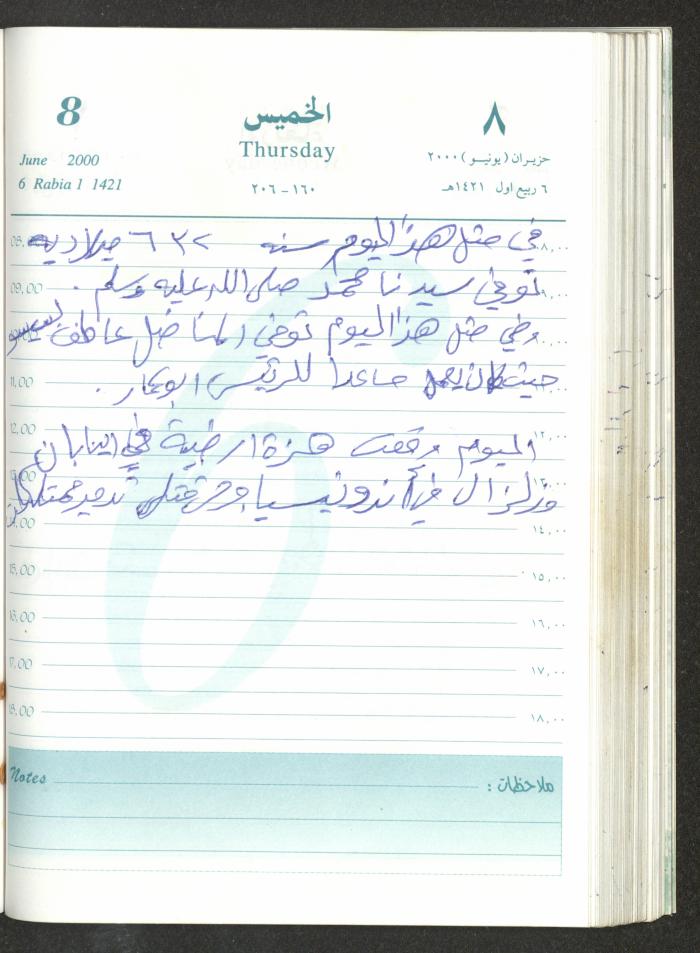 8
الخميس
٨
June 2000
Thursday
حزيران (يونيو) ٢٠٠٠
6 Rabia 1 1421
٢٠٦ - ١٦٠
٦ ربيع اول ١٤٢١هـ
08,00 في مثل هذا اليوم سنه ٦٣٢ ميلاديه ٨,٠٠
09,00 توفي سيدنا محمد صلى الله عليه وسلم .
وفي مثل هذا اليوم توفي المناضل عاطف بسيسو
11,00 حيث كان يعمل مساعدا للرئيس ابوعمار .
12,00 اليوم وقعت هزة ارضية في اليابان ١٢,٠٠
وزلزال في أندونيسيا وجرح قتلى تدمير ممتلكات
14,00 ١٤,٠٠
15,00 ١٥,٠٠
16,00 ١٦,٠٠
17,00 ١٧,٠٠
18,00 ١٨,٠٠
Notes ملاحظات :